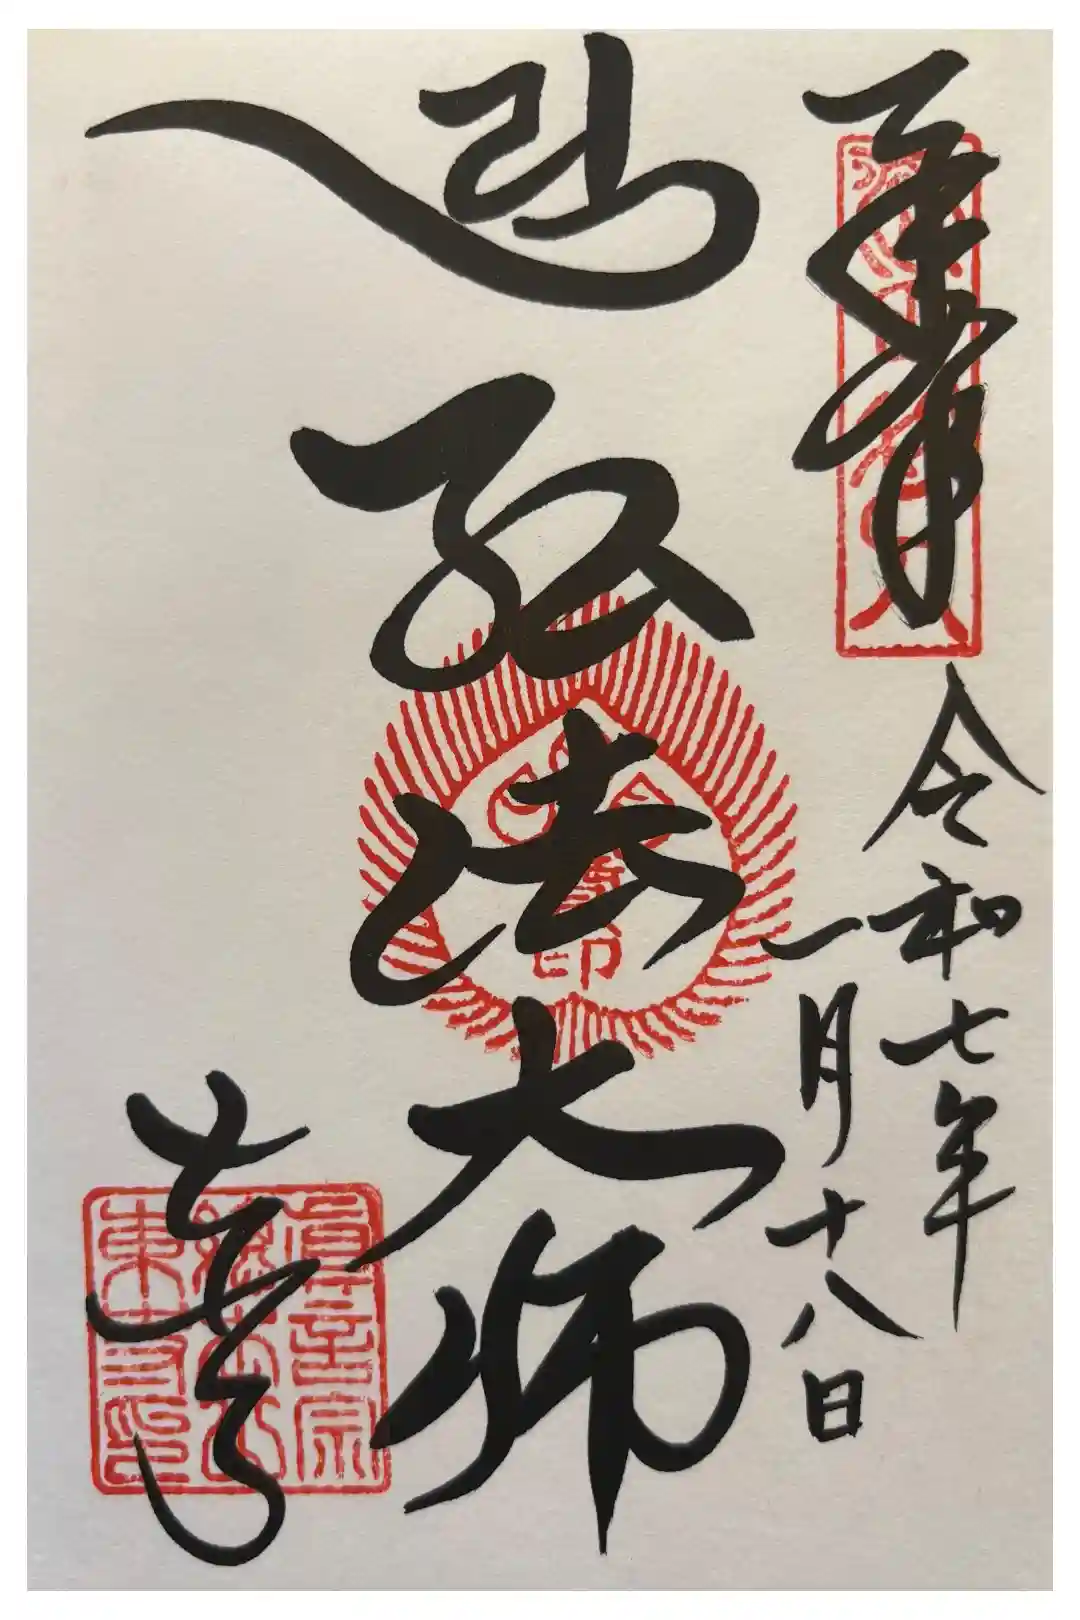 奉拝
令和七年
一月十八日
弘法大師
東寺
真言宗
總本山
東寺印